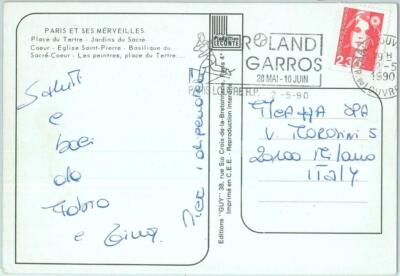 PARIS ET SES MERVEILLES.
Place du Tertre - Jardins du Sacré-
Coeur - Eglise Saint-Pierre - Basilique du
Sacré-Coeur - Les peintres, place du Tertre....
Saluti
e
baci
da
e
Editions "GUY" 38, rue Ste Croix-de-la-Bretonnerie - Paris 4e
Imprimé en C.E.E. - Reproduction interdite
Production
LECONTE
ROLAND
GARROS
28 MAI-10 JUIN
PARIS LOUVRE R.P.
2-5-90
2-5
1990
2.3
SPA
V. MOROSINI 5
20100 Milano
ITALY